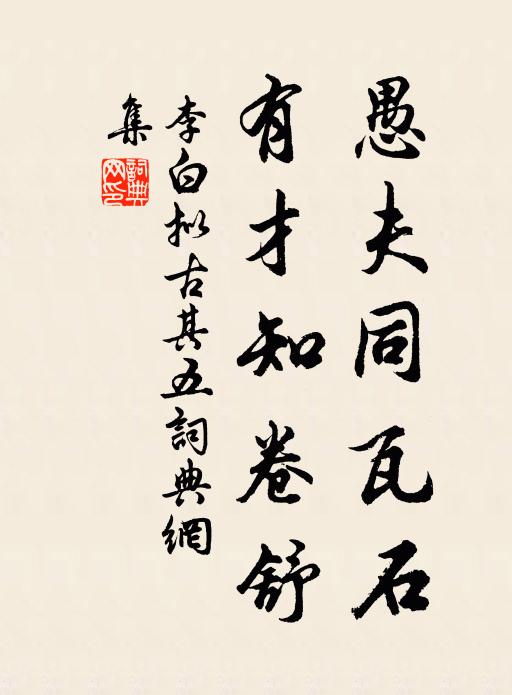 愚夫同瓦石
有才知卷舒
李白拟古其五詞典網
集
詞典網印